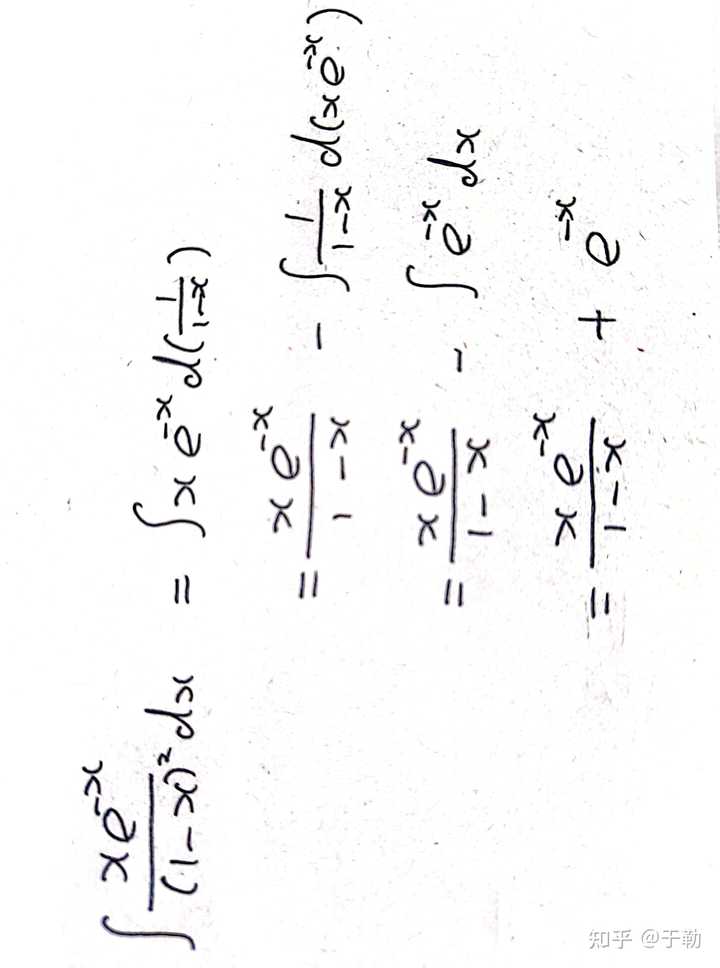 ∫ xe^{-x}/(1-x)² dx = ∫ x e^{-x} d(1/(1-x))
= xe^{-x}/(1-x) - ∫ 1/(1-x) d(xe^{-x})
= xe^{-x}/(1-x) - ∫ e^{-x} dx
= xe^{-x}/(1-x) + e^{-x}
知乎 @于勒